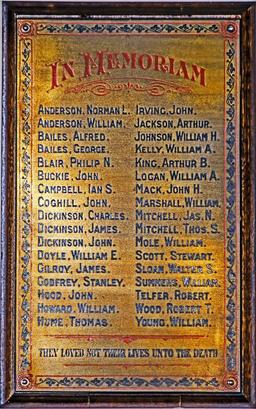 IN MEMORIAM
ANDERSON, NORMAN L. IRVING, JOHN.
ANDERSON, WILLIAM. JACKSON, ARTHUR.
BAILES, ALFRED. JOHNSON, WILLIAM H.
BAILES, GEORGE. KELLY, WILLIAM A.
BLAIR, PHILIP N. KING, ARTHUR B.
BUCKIE, JOHN. LOGAN, WILLIAM A.
CAMPBELL, IAN S. MACK, JOHN H.
COGHILL, JOHN. MARSHALL, WILLIAM.
DICKINSON, CHARLES. MITCHELL, JAS. N.
DICKINSON, JAMES. MITCHELL, THOS. S.
DICKINSON, JOHN. MOLE, WILLIAM.
DOYLE, WILLIAM E. SCOTT, STEWART.
GILROY, JAMES. SLOAN, WALTER S.
GODFREY, STANLEY. SUMMERS, WILLIAM.
HOOD, JOHN. TELFER, ROBERT.
HOWARD, WILLIAM. WOOD, ROBERT T.
HUME, THOMAS. YOUNG, WILLIAM.
THEY LOVED NOT THEIR LIVES UNTO THE DEATH